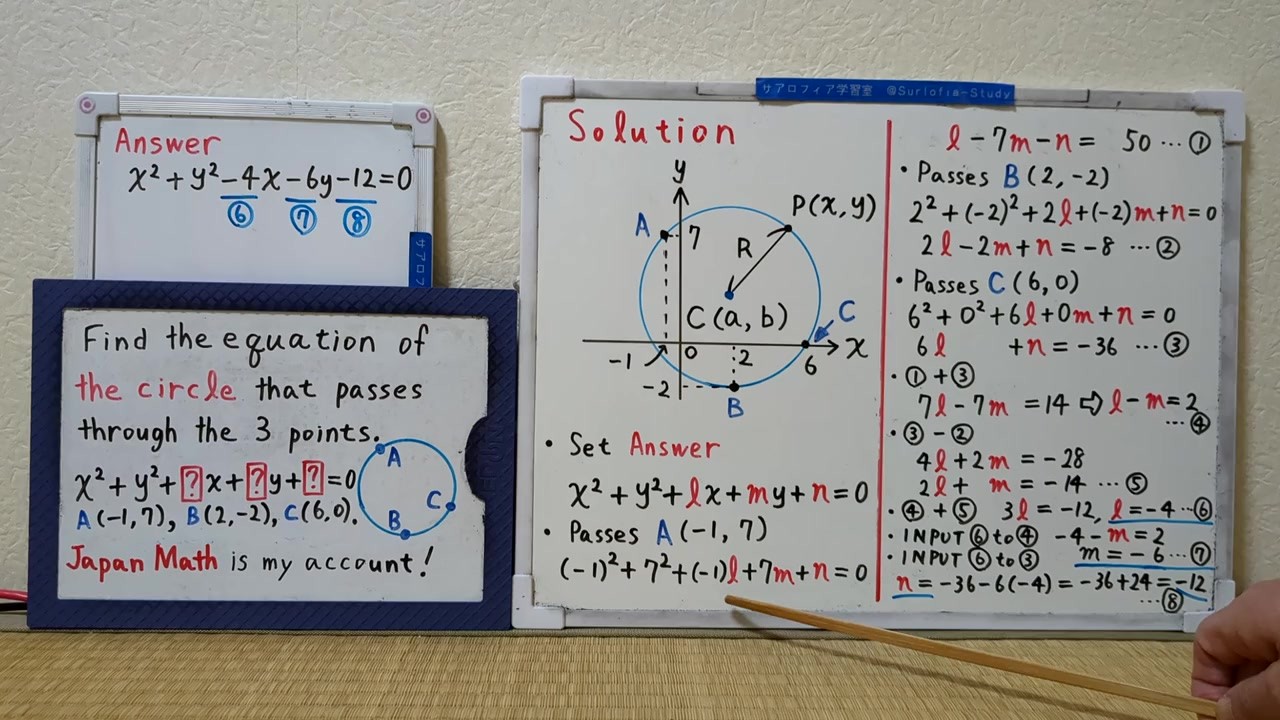 サアロフィア学習室 @Surlofia-Study
Answer
x² + y² - 4x - 6y - 12 = 0
⑥ ⑦ ⑧
サアロフ
Find the equation of
the circle that passes
through the 3 points.
x² + y² + ? x + ? y + ? = 0
A(-1, 7), B(2, -2), C(6, 0).
A
B
C
Japan Math is my account!
Solution
y
P(x, y)
A
7
R
C(a, b)
C
-1
0
2
6
x
-2
B
• Set Answer
x² + y² + lx + my + n = 0
• Passes A(-1, 7)
(-1)² + 7² + (-1)l + 7m + n = 0
l - 7m - n = 50 … ①
• Passes B(2, -2)
2² + (-2)² + 2l + (-2)m + n = 0
2l - 2m + n = -8 … ②
• Passes C(6, 0)
6² + 0² + 6l + 0m + n = 0
6l + n = -36 … ③
• ① + ③
7l - 7m = 14 ⇨ l - m = 2
… ④
• ③ - ②
4l + 2m = -28
2l + m = -14 … ⑤
• ④ + ⑤ 3l = -12, l = -4 … ⑥
• INPUT ⑥ to ④ -4 - m = 2
• INPUT ⑥ to ③ m = -6 … ⑦
n = -36 - 6(-4) = -36 + 24 = -12
… ⑧